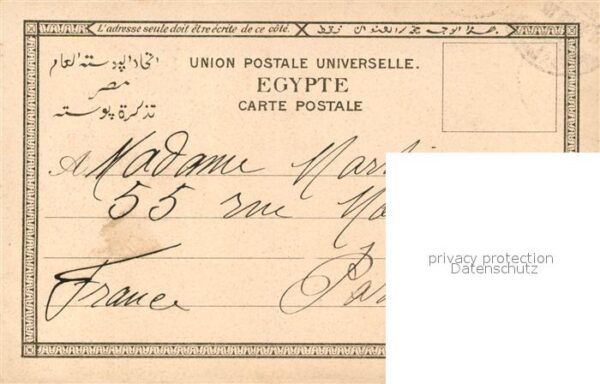 L'adresse seule doit être écrite de ce côté.
اتحاد البوسته العام
مصر
تذكرة بوسته
UNION POSTALE UNIVERSELLE.
EGYPTE
CARTE POSTALE
A Madame
55 rue
France
privacy protection
Datenschutz